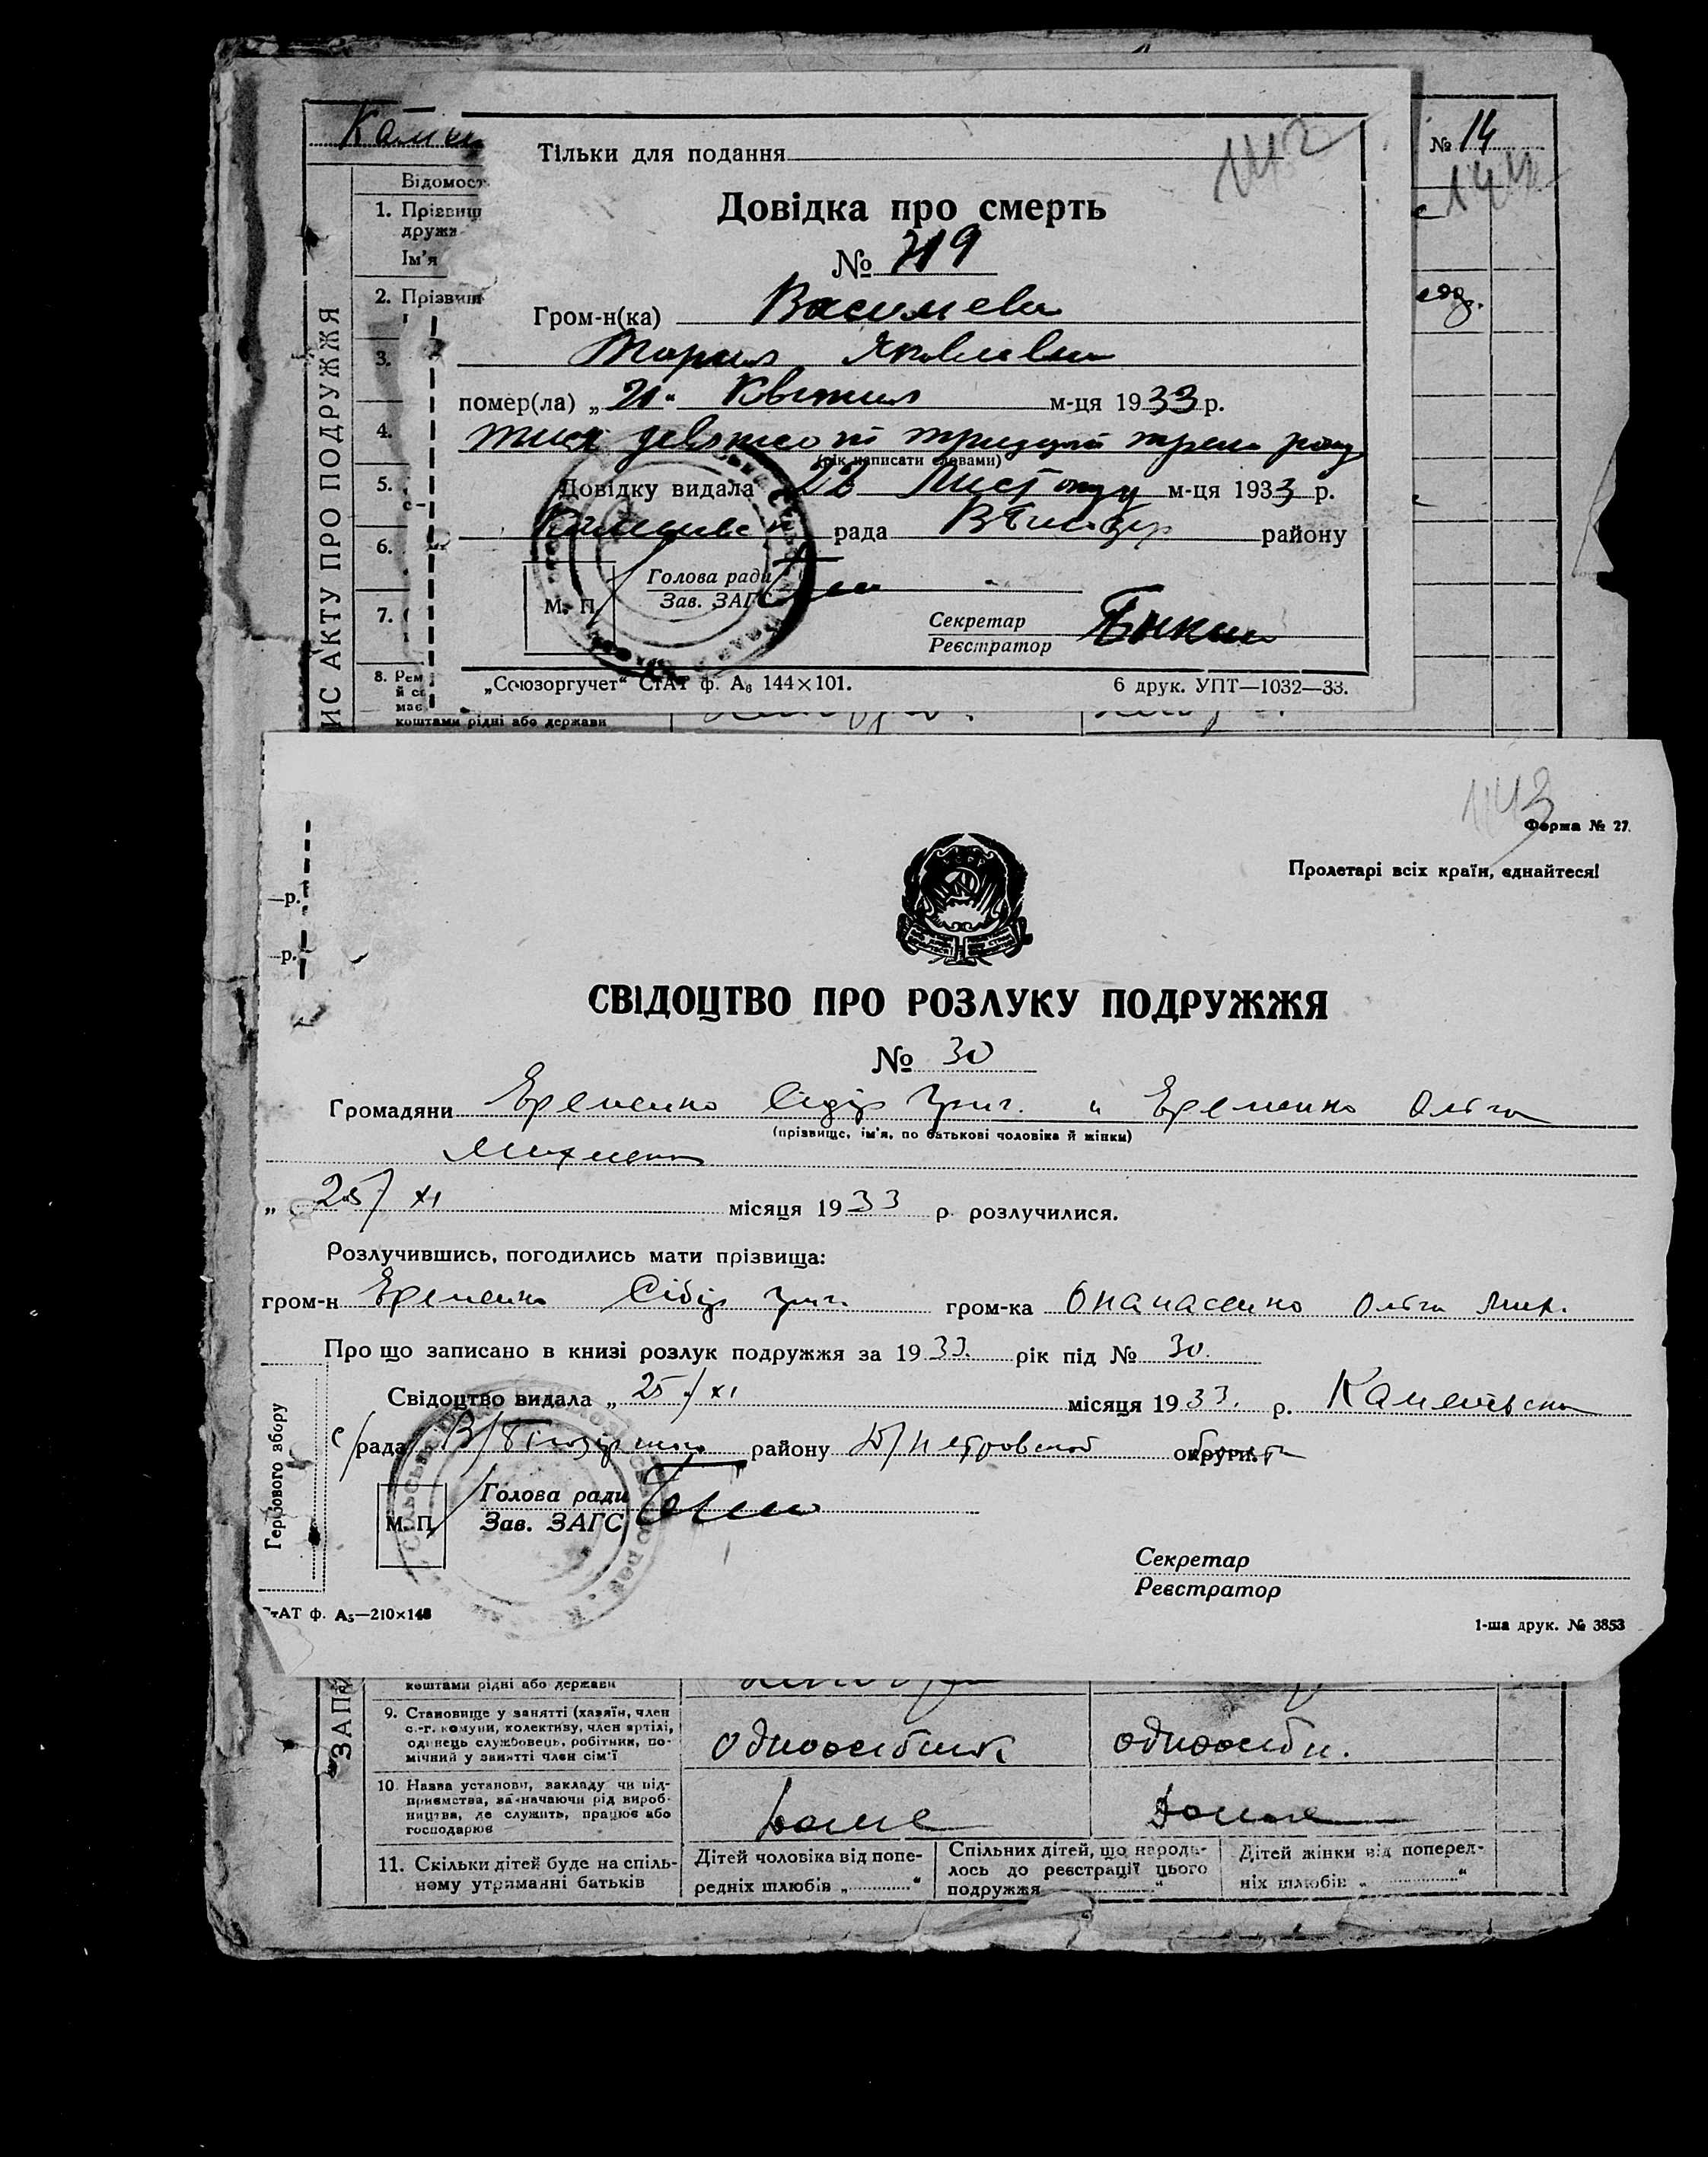 № 14
Відомост
1. Прізвищ
дружи
Ім'я
2. Прізвищ
3.
4.
5.
6.
7.
8. Рем
й сі
має
коштами рідні або держави
ИС АКТУ ПРО ПОДРУЖЖЯ
142
Тільки для подання
Довідка про смерть
№ 719
Гром-н(ка)
Мария Яковлевна
помер(ла) „21" Квітня м-ця 1933 р.
тися девятсот тридцять треть року
(рік написати словами)
Довідку видала 28 Листопаду м-ця 1933 р.
рада району
Голова ради
Зав. ЗАГС
М. П.
Секретар
Реєстратор
„Союзоргучет" СтАТ ф. А₆ 144×101. 6 друк. УПТ—1032—33.
143
Форма № 27.
Пролетарі всіх країн, єднайтеся!
—р.
—р.
СВІДОЦТВО ПРО РОЗЛУКУ ПОДРУЖЖЯ
№ 30
Громадяни Еременко Сидір Григ. и Еременко Ольга
(прізвище, ім'я, по батькові чоловіка й жінки)
„ 25/XI місяця 1933 р. розлучилися.
Розлучившись, погодились мати прізвища:
гром-н Еременко Сідір Григ. гром-ка Опанасенко Ольга Мих.
Про що записано в книзі розлук подружжя за 1933. рік під № 30.
Свідоцтво видала „25/XI місяця 1933. р. Каменська
с/рада В/Білозірського району Д/петровской округи
Гербового збору
Голова ради
М. П. Зав. ЗАГС
Секретар
Реєстратор
тАТ ф. А₅—210×148 1-ша друк. № 3853
„ЗАПИ
коштами рідні або держави
9. Становище у занятті (хазяїн, член
с.-г. комуни, колективу, член артілі,
одинець службовець, робітник, по-
мічний у занятті член сім'ї
одноосібник одноосібн.
10. Назва установи, закладу чи під-
приємства, зазначаючи рід вироб-
ництва, де служить, працює або
господарює
дома дома
11. Скільки дітей буде на спіль-
ному утриманні батьків
Дітей чоловіка від попе-
редніх шлюбів „ "
Спільних дітей, що народи-
лось до реєстрації цього
подружжя "
Дітей жінки від поперед-
ніх шлюбів „ "